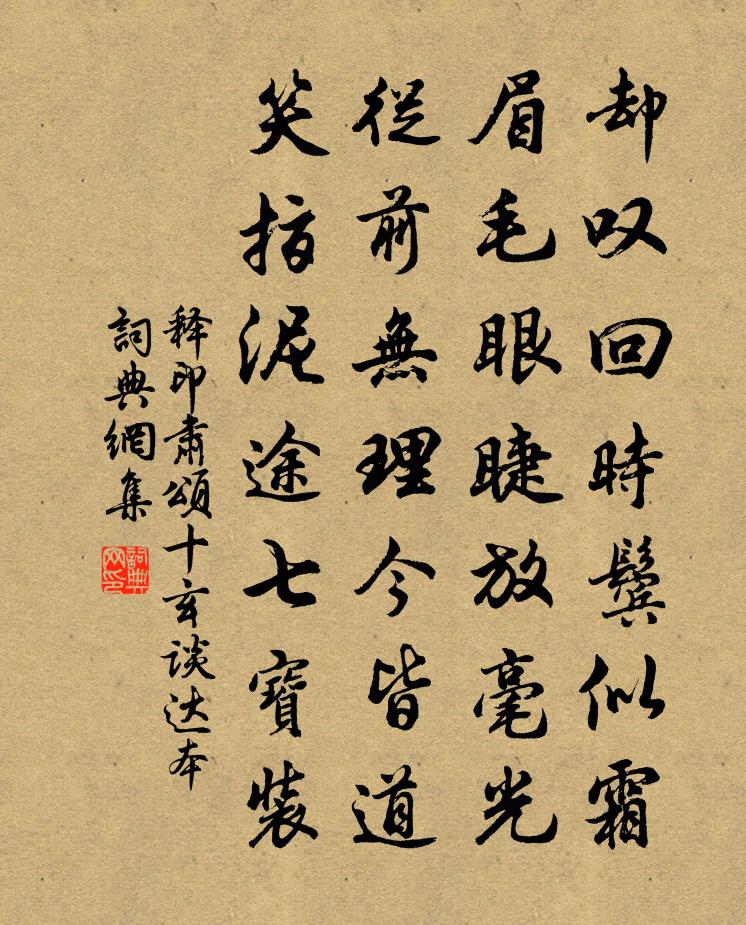 却叹回時鬓似霜
眉毛眼睫放毫光
從前無理今皆道
笑指泥途七寶裝
释印肃頌十玄談达本
詞典網集
詞典网印